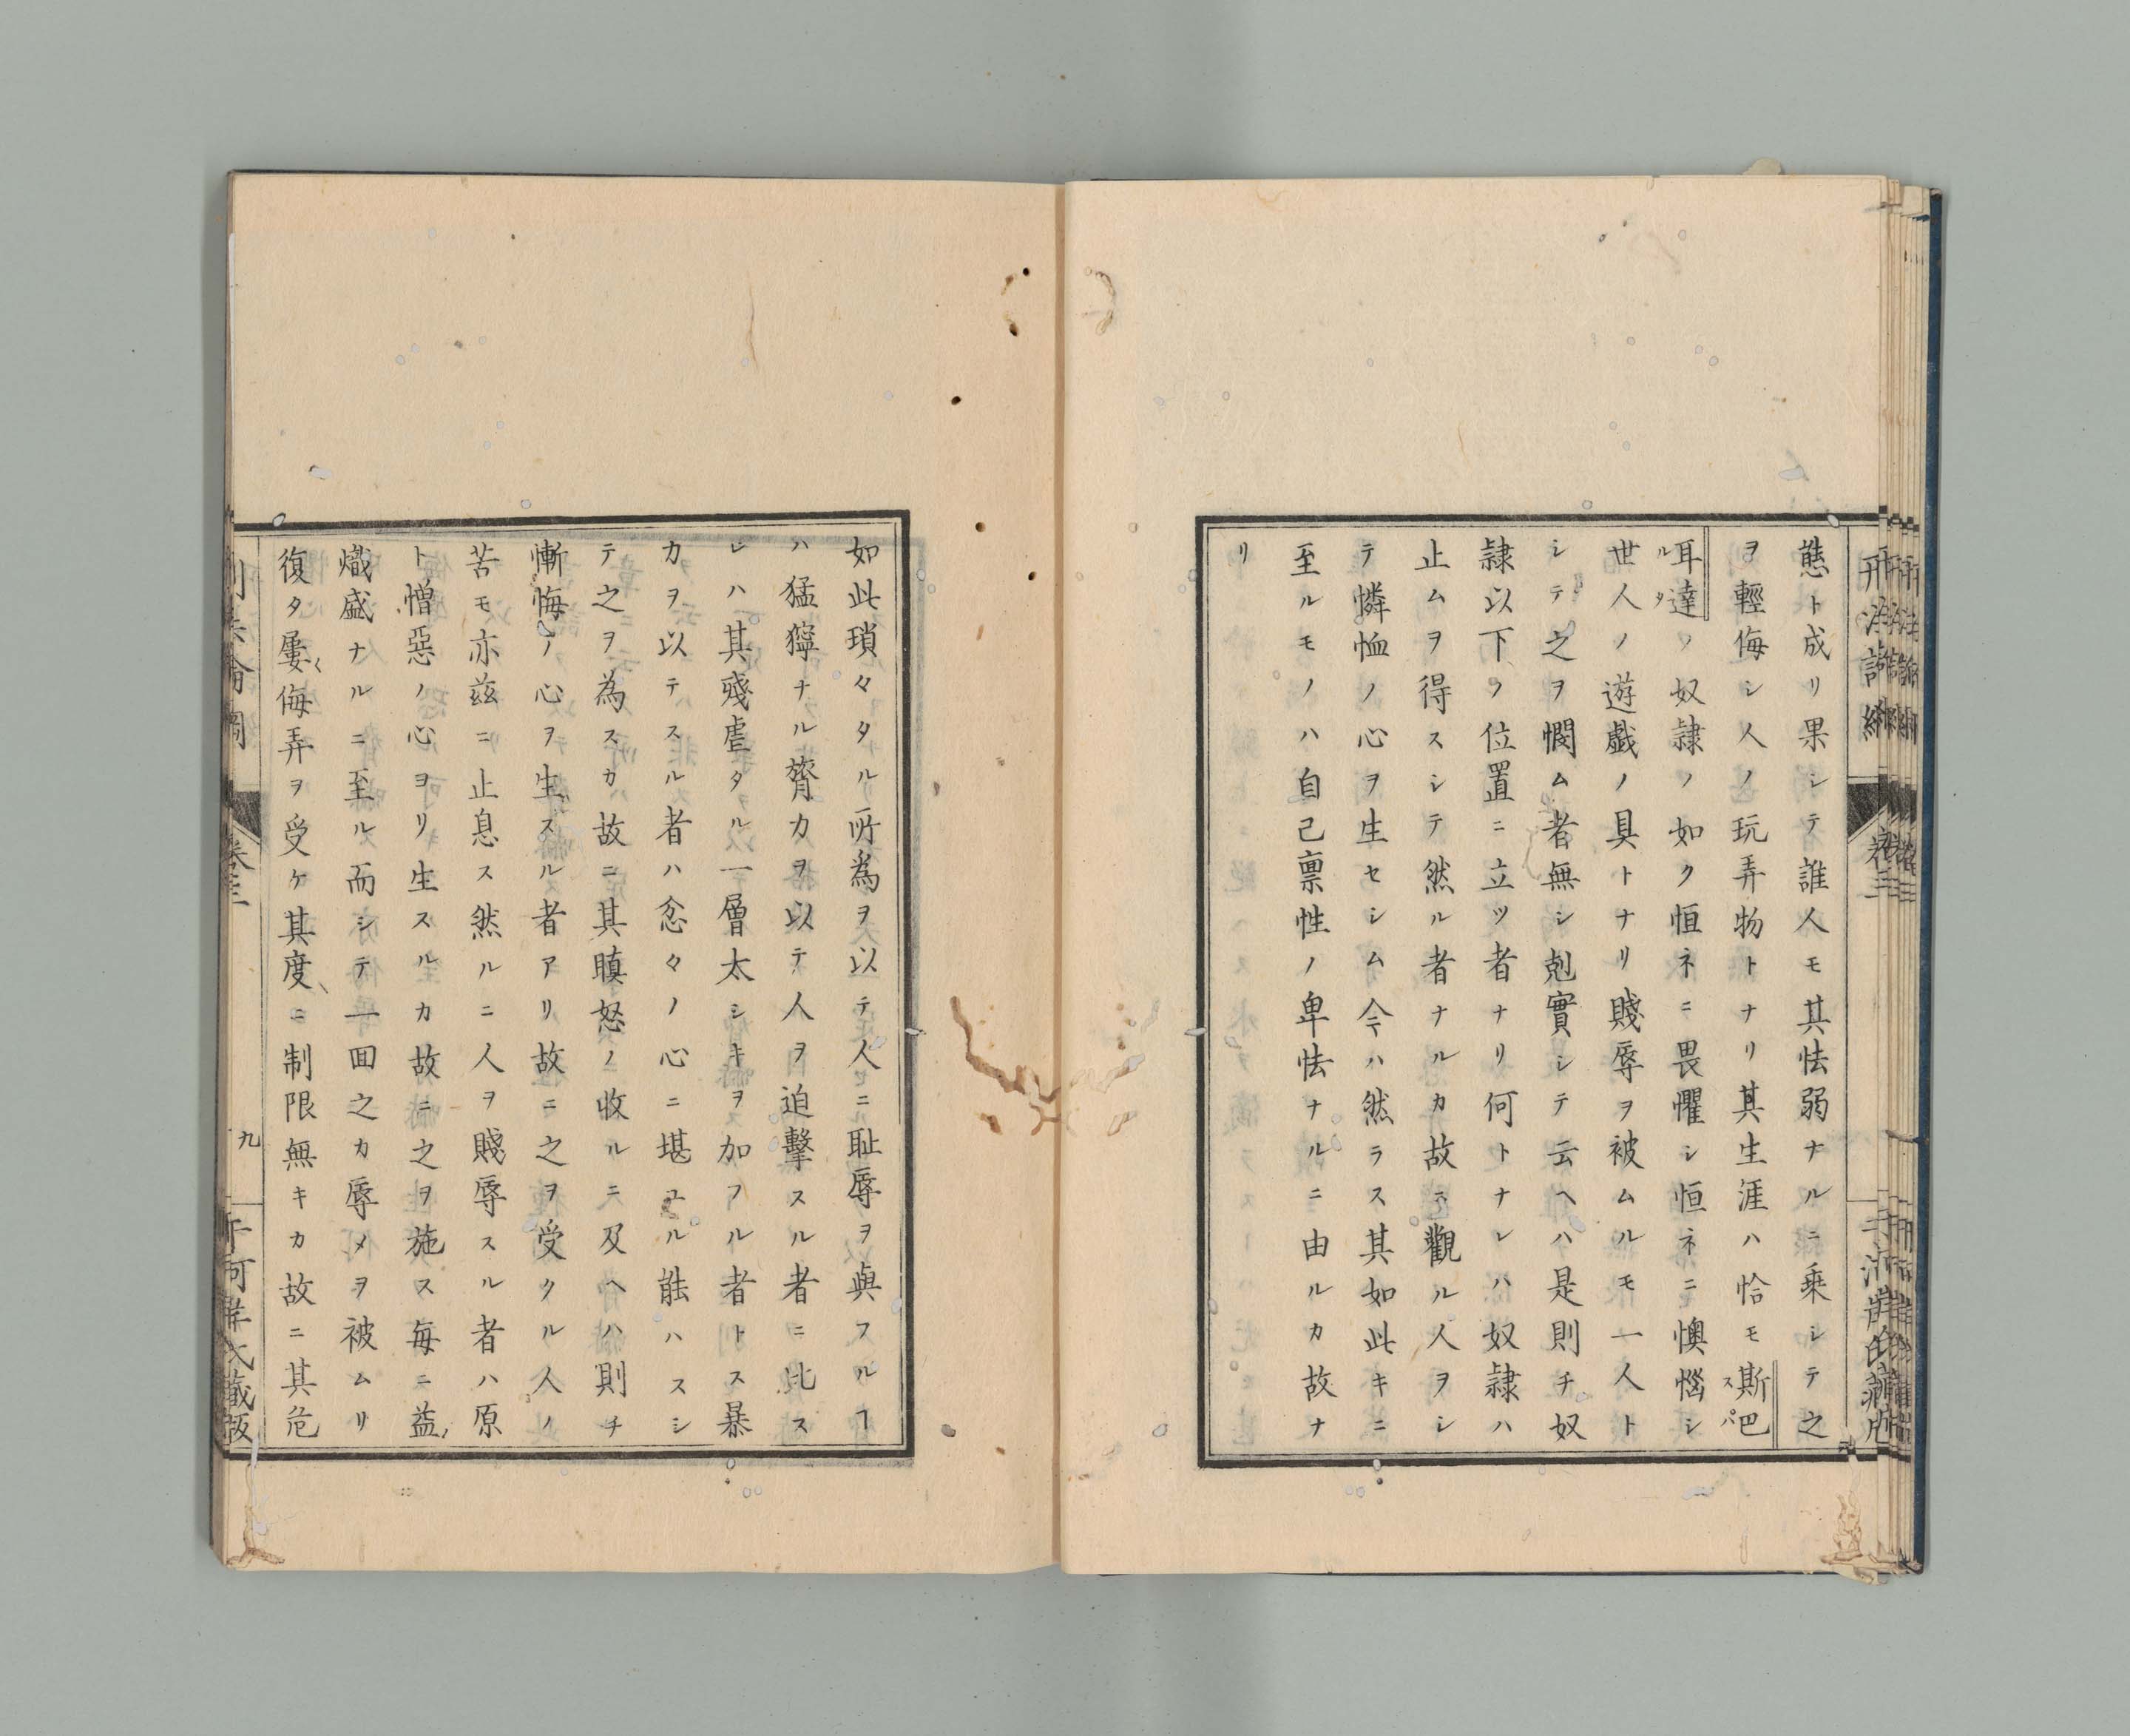 態ト成リ果シテ誰人モ其怯弱ナルニ乗シテ之
ヲ輕侮シ人ノ玩弄物トナリ其生涯ハ恰モ斯巴
耳達ノ奴隷ノ如ク恒ネニ畏懼シ恒ネニ懊惱シ
世人ノ遊戯ノ具トナリ賤辱ヲ被ムルモ一人ト
シテ之ヲ憫ム者無シ剋實シテ云ヘハ是則チ奴
隷以下ノ位置ニ立ツ者ナリ何トナレハ奴隷ハ
止ムヲ得スシテ然ル者ナルカ故ニ觀ル人ヲシ
テ憐恤ノ心ヲ生セシム今ハ然ラス其如此キニ
至ルモノハ自己禀性ノ卑怯ナルニ由ルカ故ナ
リ
如此瑣々タル所為ヲ以テ人ニ耻辱ヲ與フルヿ
ハ猛獰ナル膂力ヲ以テ人ヲ迫擊スル者ニ比ス
レハ其殘虐タル一層太シキヲ加フル者トス暴
力ヲ以テスル者ハ忿々ノ心ニ堪ユル能ハスシ
テ之ヲ為スカ故ニ其瞋怒ノ收ルニ及ヘハ則チ
慚悔ノ心ヲ生スル者アリ故ニ之ヲ受クル人ノ
苦モ亦茲ニ止息ス然ルニ人ヲ賤辱スル者ハ原
ト憎惡ノ心ヨリ生スルカ故ニ之ヲ施ス毎ニ益
熾盛ナルニ至ル而シテ一回之カ辱メヲ被ムリ
復タ屢侮弄ヲ受ケ其度ニ制限無キカ故ニ其危
卷三
九